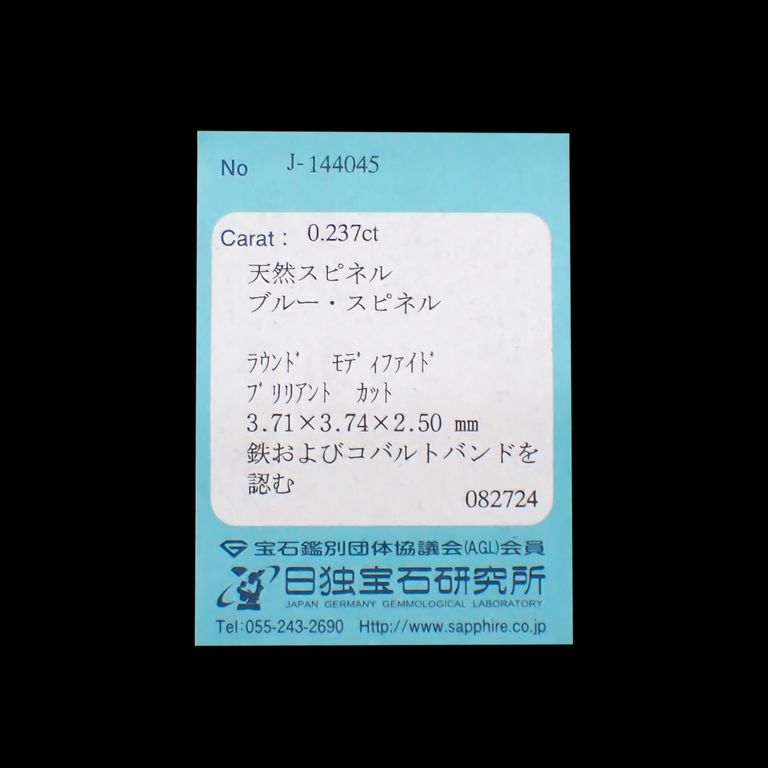 No J-144045
Carat : 0.237ct
天然スピネル
ブルー・スピネル
ﾗｳﾝﾄﾞ ﾓﾃﾞｨﾌｧｲﾄﾞ
ﾌﾞﾘﾘｱﾝﾄ ｶｯﾄ
3.71×3.74×2.50 mm
鉄およびコバルトバンドを
認む
082724
宝石鑑別団体協議会(AGL)会員
日独宝石研究所
JAPAN GERMANY GEMMOLOGICAL LABORATORY
Tel:055-243-2690 Http://www.sapphire.co.jp